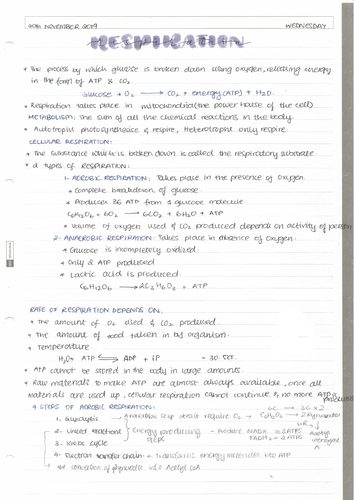 NOVEMBER 2019 WEDNESDAY
RESPIRATION
• The process by which glucose is broken down using oxygen, releasing energy
in the form of ATP & CO2
Glucose + O2 → CO2 + energy (ATP) + H2O.
• Respiration takes place in mitochondria (the power house of the cell)
METABOLISM: The sum of all the chemical reactions in the body.
• Autotroph photosynthesise & respire, Heterotroph only respire.
CELLULAR RESPIRATION:
• The substance which is broken down is called the respiratory substrate.
• 2 types of RESPIRATION:
1. AEROBIC RESPIRATION: Takes place in the presence of oxygen.
• Complete breakdown of glucose
• Produces 36 ATP from 1 glucose molecule
C6H12O6 + 6O2 → 6CO2 + 6H2O + ATP
• Volume of oxygen used & CO2 produced depends on activity of person
2- ANAEROBIC RESPIRATION: Takes place in absence of oxygen.
• Glucose is incompletely oxidized.
• Only 2 ATP produced
• Lactic acid is produced.
C6H12O6 → 2C3H6O3 + ATP
RATE OF RESPIRATION DEPENDS ON:
• The amount of O2 used & CO2 produced.
• The amount of food taken in by organism.
• Temperature
H2O + ATP ⇌ ADP + iP - 30
• ATP cannot be stored in the body in large amounts.
• Raw materials to make ATP are almost always available, once all
materials are used up, cellular respiration cannot continue & no more ATP is produced
4 STEPS OF AEROBIC RESPIRATION: 6C → 3C x 2
1. Glycolysis → Anaerobic step doesn't require O2 → C6H12O6 → 2 Pyruvates
2. Linked reactions Energy producing steps - Produce NADH = 3ATPS
3. Kreb cycle FADH2 = 2 ATPS
4. Electron transfer chain → transfers energy molecules into ATP
conversion of pyruvate into Acetyl CoA